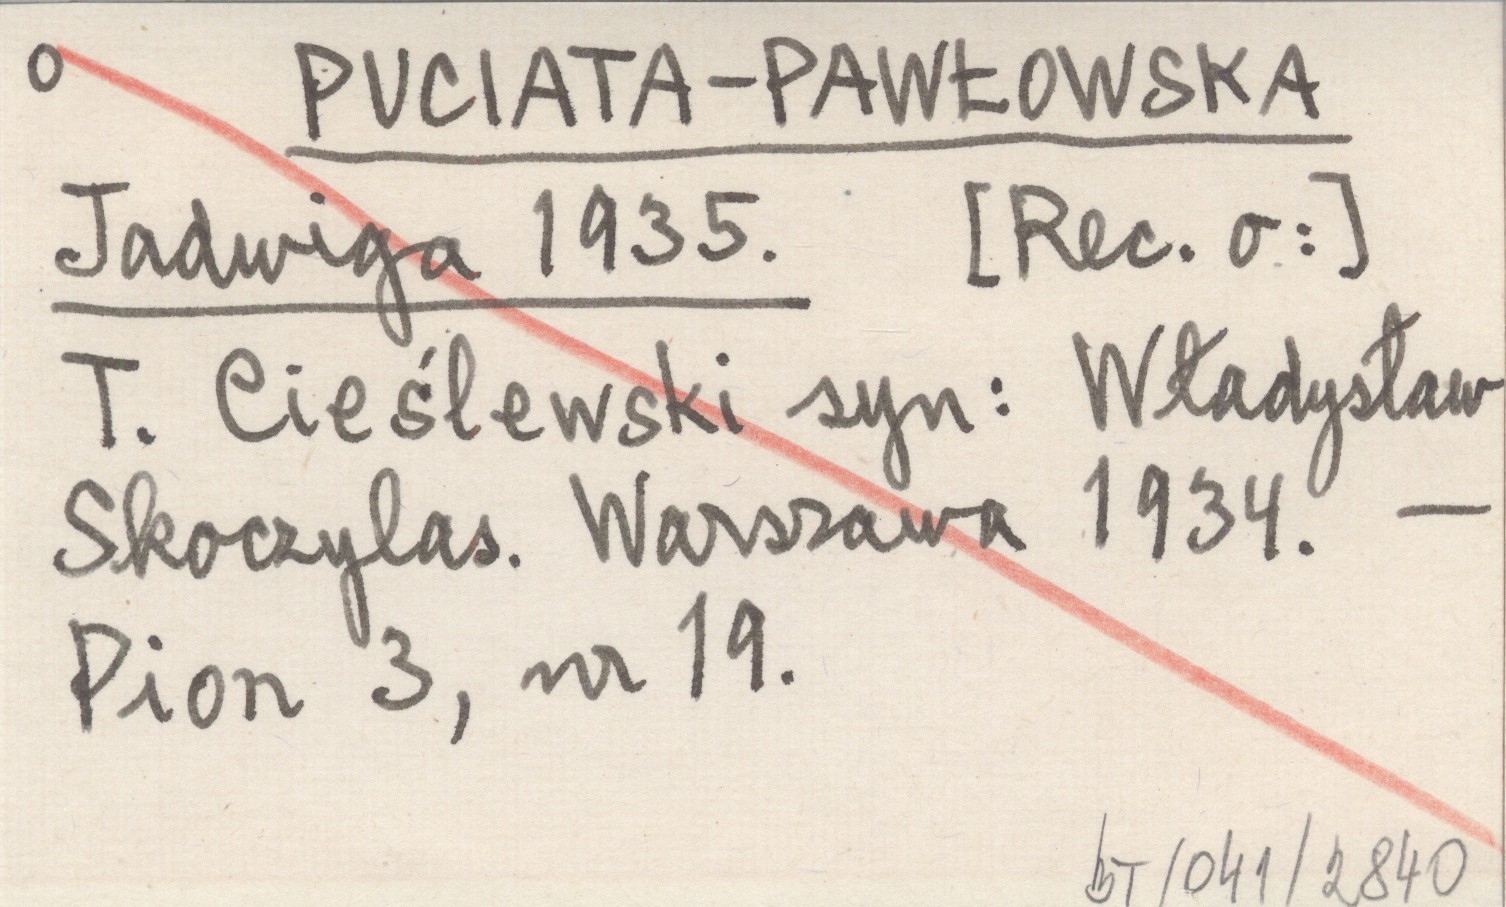 o PUCIATA-PAWŁOWSKA
Jadwiga 1935. [Rec. o:]
T. Cieślewski syn: Władysław
Skoczylas. Warszawa 1934. —
Pion 3, nr 19.
/041/2840